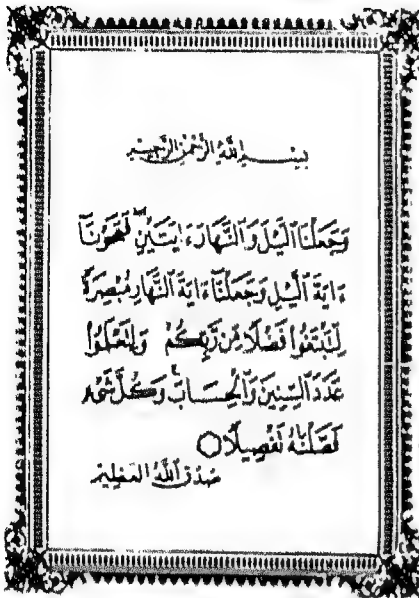 بِسْمِ اللَّهِ الرَّحْمَٰنِ الرَّحِيمِ
وَجَعَلْنَا ٱلَّيْلَ وَٱلنَّهَارَ ءَايَتَيْنِ ۖ فَمَحَوْنَآ
ءَايَةَ ٱلَّيْلِ وَجَعَلْنَآ ءَايَةَ ٱلنَّهَارِ مُبْصِرَةً
لِّتَبْتَغُوا۟ فَضْلًا مِّن رَّبِّكُمْ وَلِتَعْلَمُوا۟
عَدَدَ ٱلسِّنِينَ وَٱلْحِسَابَ ۚ وَكُلَّ شَىْءٍ
فَصَّلْنَٰهُ تَفْصِيلًا
صَدَقَ اللَّهُ العَظِيم